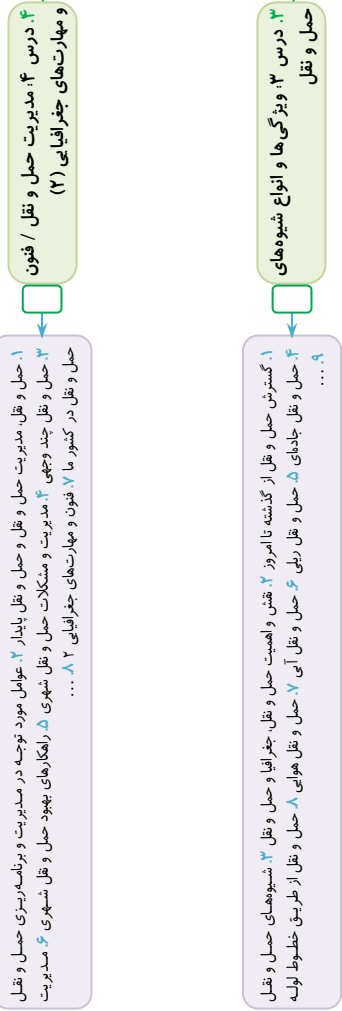 ۳. درس ۳: ویژگی‌ها و انواع شیوه‌های
حمل و نقل
۱. گسترش حمل و نقل از گذشته تا امروز ۲. نقش و اهمیت حمل و نقل، جغرافیا و حمل و نقل ۳. شیوه‌های حمل و نقل
۴. حمل و نقل جاده‌ای ۵. حمل و نقل ریلی ۶. حمل و نقل آبی ۷. حمل و نقل هوایی ۸. حمل و نقل از طریق خطوط لوله
۹. ...
۴. درس ۴: مدیریت حمل و نقل / فنون
و مهارت‌های جغرافیایی (۲)
۱. حمل و نقل، مدیریت حمل و نقل و حمل و نقل پایدار ۲. عوامل مورد توجه در مدیریت و برنامه‌ریزی حمل و نقل
۳. حمل و نقل چند وجهی ۴. مدیریت و مشکلات حمل و نقل شهری ۵. راهکارهای بهبود حمل و نقل شهری ۶. مدیریت
حمل و نقل در کشور ما ۷. فنون و مهارت‌های جغرافیایی ۲ ۸. ...